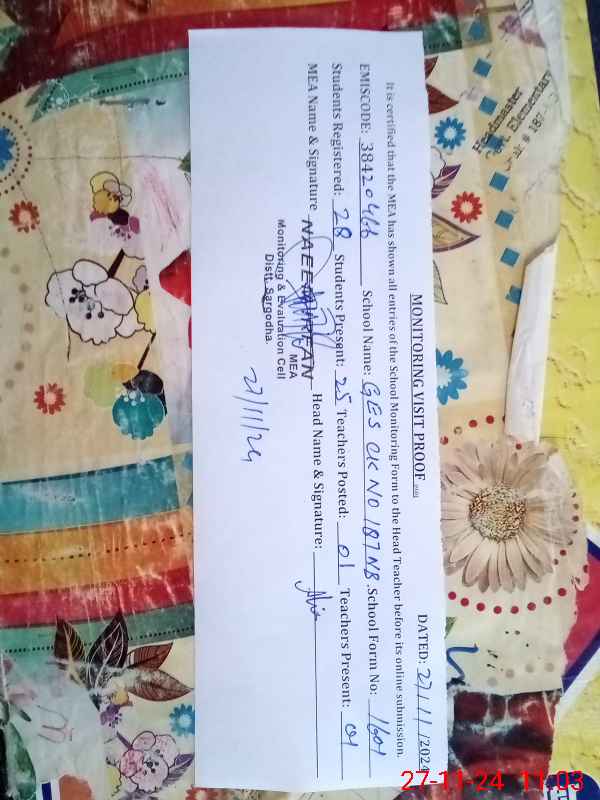 MONITORING VISIT PROOF
DATED: 27/11/2024
It is certified that the MEA has shown all entries of the School Monitoring Form to the Head Teacher before its online submission.
EMISCODE: 38420466 School Name: GES CK NO 187 NB School Form No: 1601
Students Registered: 28 Students Present: 25 Teachers Posted: 01 Teachers Present: 01
MEA Name & Signature NAEEM IRFAN Head Name & Signature:
MEA
Monitoring & Evaluation Cell
Distt. Sargodha.
27/11/24
Headmaster
Elementary
# 187
27-11-24 11:03